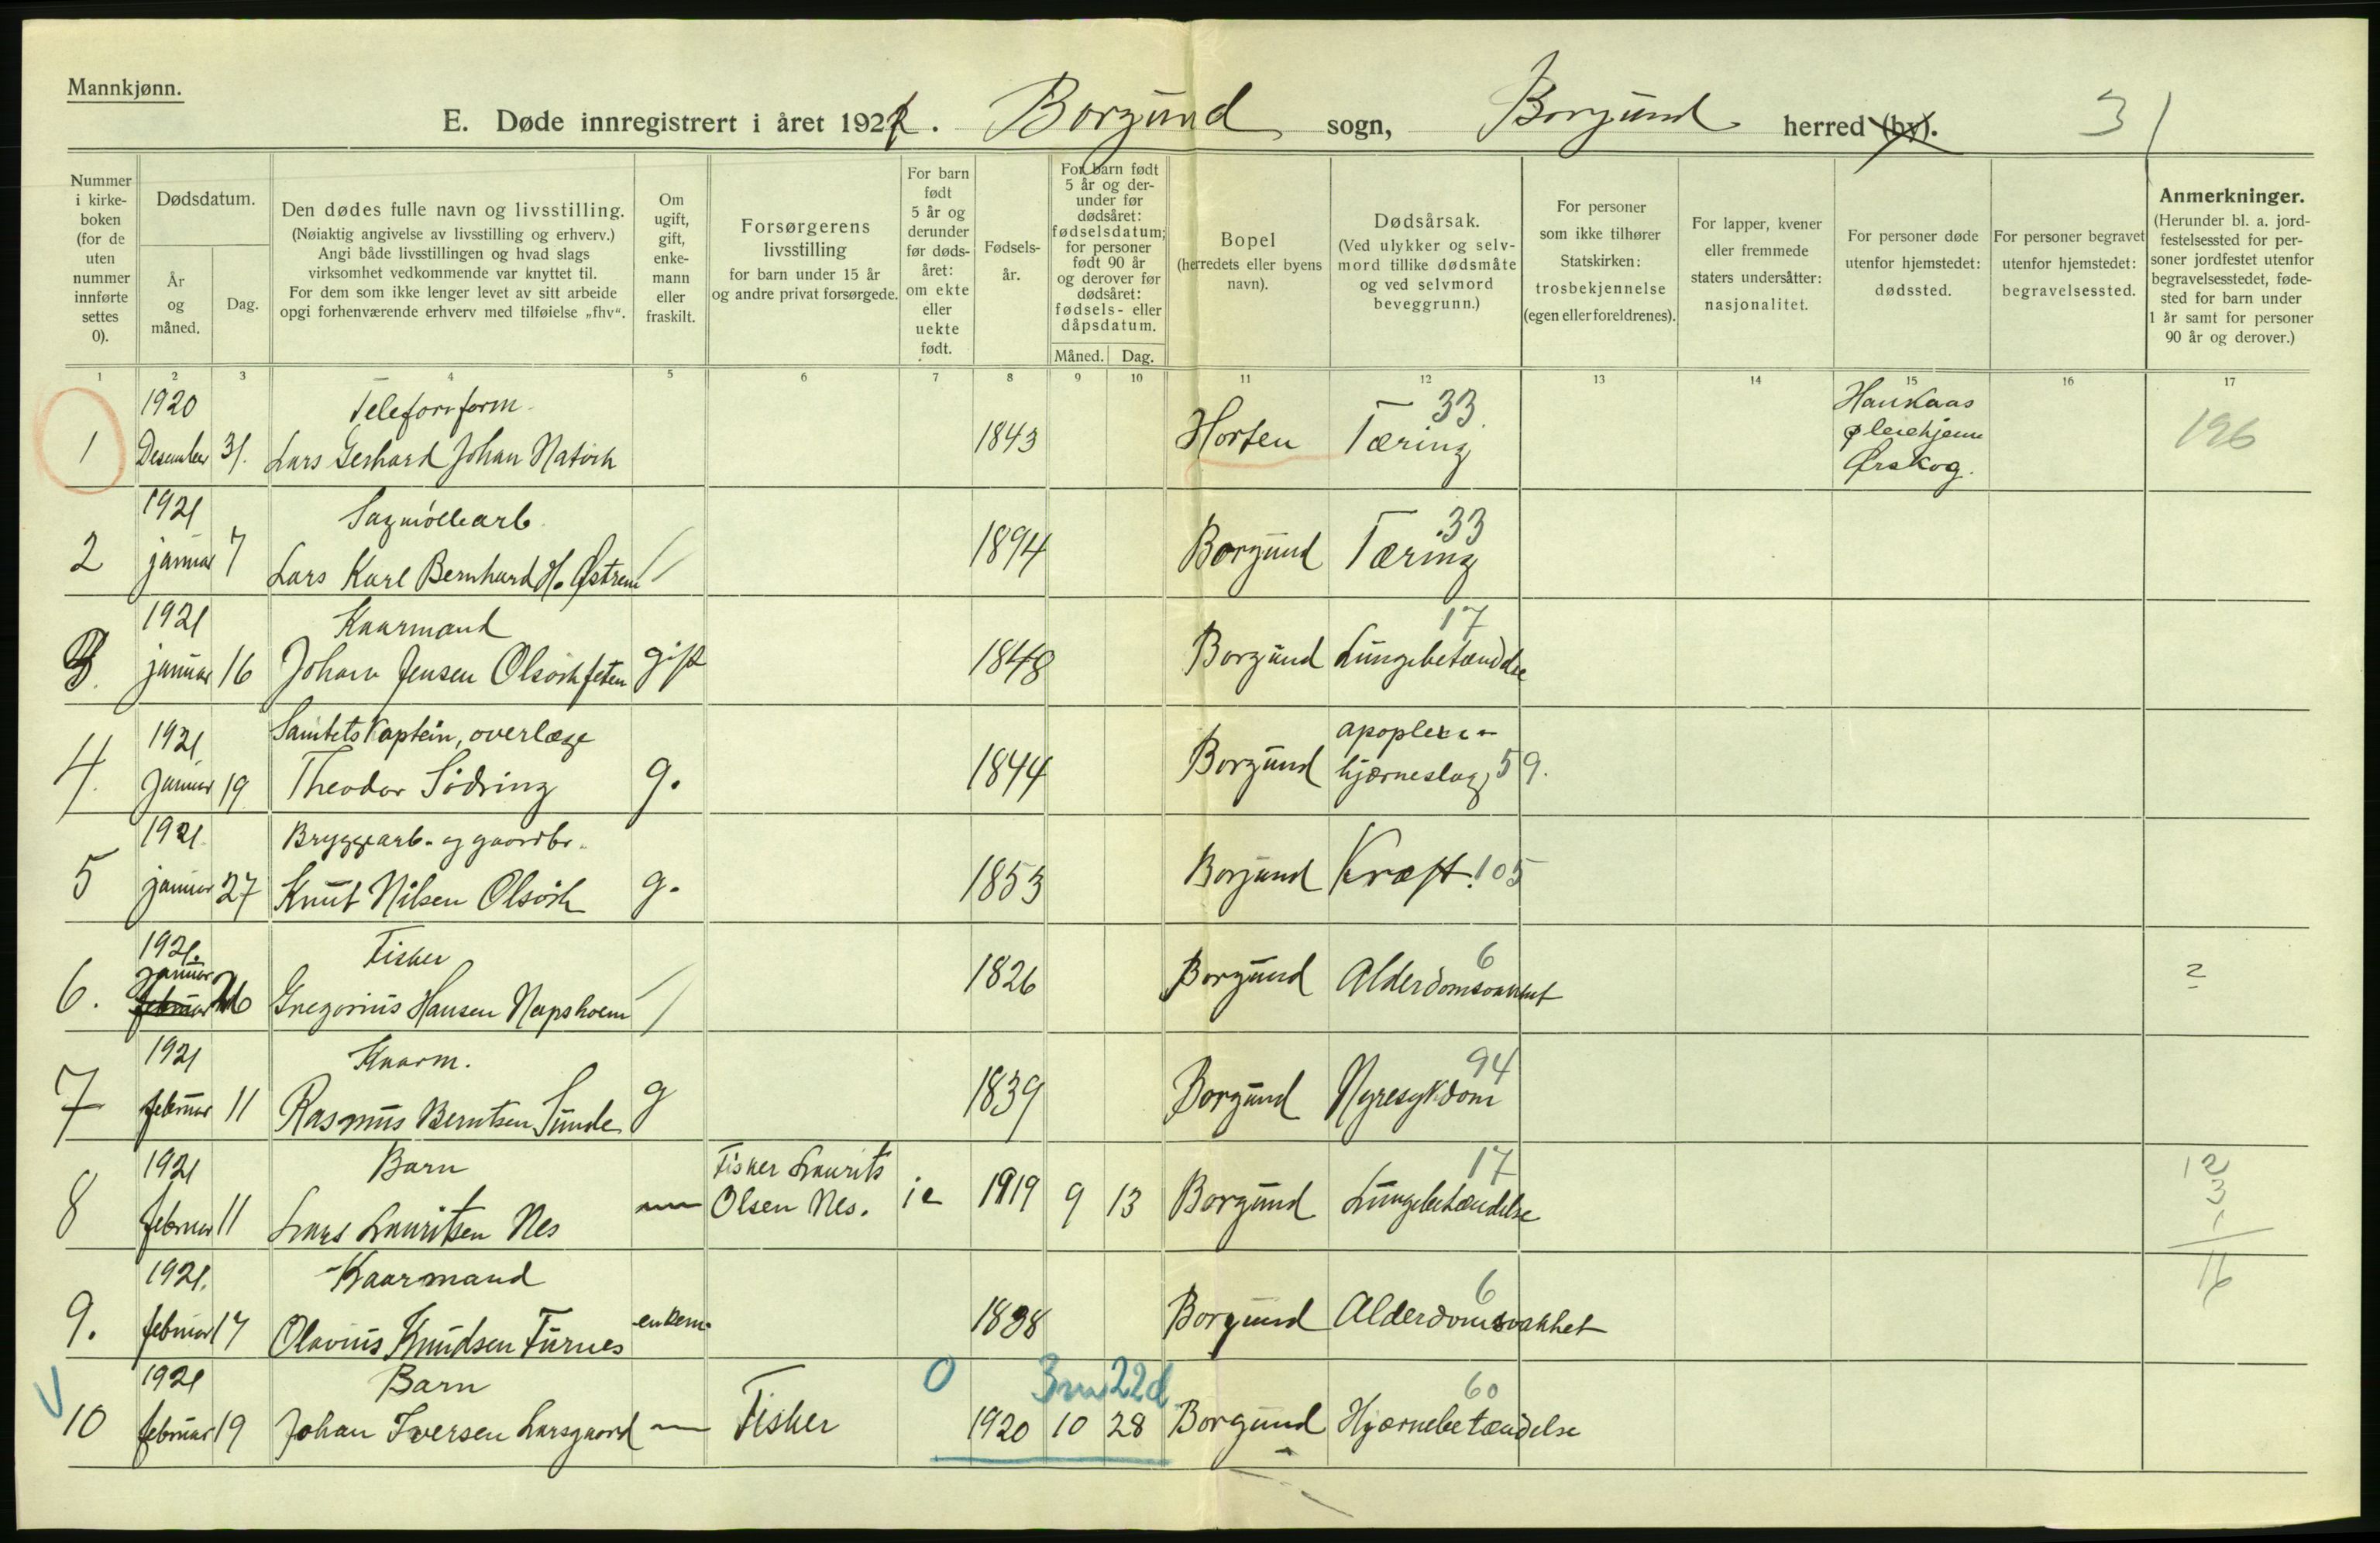 Mannkjønn.
E. Døde innregistrert i året 1921. Borgund sogn, Borgund herred (by). 31
Nummer i kirkeboken (for de uten nummer innførte settes 0).
Dødsdatum.
År og måned.
Dag.
Den dødes fulle navn og livsstilling.
(Nøiaktig angivelse av livsstilling og erhverv.)
Angi både livsstillingen og hvad slags
virksomhet vedkommende var knyttet til.
For dem som ikke lenger levet av sitt arbeide
opgi forhenværende erhverv med tilføielse „fhv“.
Om ugift, gift, enkemann eller fraskilt.
Forsørgerens livsstilling
for barn under 15 år
og andre privat forsørgede.
For barn født 5 år og derunder før dødsåret: om ekte eller uekte født.
Fødselsår.
For barn født 5 år og derunder før dødsåret: fødselsdatum; for personer født 90 år og derover før dødsåret: fødsels- eller dåpsdatum.
Måned. Dag.
Bopel
(herredets eller byens navn).
Dødsårsak.
(Ved ulykker og selvmord tillike dødsmåte og ved selvmord beveggrunn.)
For personer som ikke tilhører Statskirken: trosbekjennelse (egen eller foreldrenes).
For lapper, kvener eller fremmede staters undersåtter: nasjonalitet.
For personer døde utenfor hjemstedet: dødssted.
For personer begravet utenfor hjemstedet: begravelsessted.
Anmerkninger.
(Herunder bl. a. jordfestelsessted for personer jordfestet utenfor begravelsesstedet, fødested for barn under 1 år samt for personer 90 år og derover.)
1 2 3 4 5 6 7 8 9 10 11 12 13 14 15 16 17
1920 Telefonform. 33 Haukaas
1 Desember 31. Lars Gerhard Johan Natvik 1843 Horten Tæring pleiehjem 196
Ørskog.
1921 Sagmøllearb. 33
2 januar 7 Lars Karl Bernhard H. Østrem / 1894 Borgund Tæring
1921 Kaarmand 17
3. januar 16 Johan Jensen Olsvikfeten gift 1848 Borgund Lungebetændelse
1921 Sanitetskaptein, overlæge apoplexia
4. Januar 19 Theodor Södring g. 1844 Borgund hjerneslag, 59.
1921. Bryggearb. og gaardbr.
5 januar 27 Knut Nilsen Olsvik g. 1853 Borgund Kræft. 105
1921. januar Fisker 6
6. februar 26 Gregorius Hansen / 1826 Borgund Alderdomssvakhet 2
1921 Kaarm. 94
7 februar 11 Rasmus Berntsen Sunde g 1839 Borgund Nyresykdom
1921 Barn Fisker Laurits 17 12
8 februar 11 Lars Lauritsen Nes — Olsen Nes. 1919 9 13 Borgund Lungebetændelse 3
1
1921. Kaarmand 6 16
9. februar 17 Olavius Knudsen Furnes enkem. 1838 Borgund Alderdomssvakhet
1921 Barn 0 3m 22d 60
V 10 februar 19 Johan Iversen Larsgaard — Fisker 1920 10 28 Borgund Hjærnebetændelse